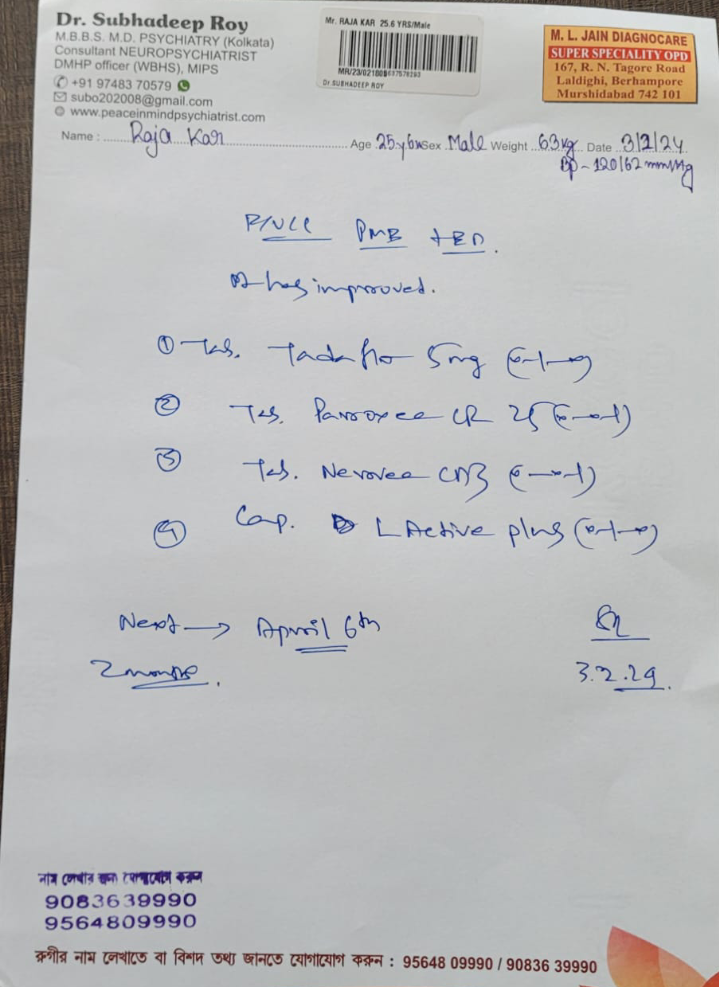 Dr. Subhadeep Roy
M.B.B.S. M.D. PSYCHIATRY (Kolkata)
Consultant NEUROPSYCHIATRIST
DMHP officer (WBHS), MIPS
+91 97483 70579
subo202008@gmail.com
www.peaceinmindpsychiatrist.com
Mr. RAJA KAR 25.6 YRS/Male
Dr SUBHADEEP ROY
M. L. JAIN DIAGNOCARE
SUPER SPECIALITY OPD
167, R. N. Tagore Road
Laldighi, Berhampore
Murshidabad 742 101
Name : Raja Kar Age 25y6m Sex Male Weight 63kg Date 3/2/24
BP - 120/62 mmHg
PMB + ED.
has improved.
① Tab. 5mg (0-1-0)
② Tab. CR 25 (0-0-1)
③ Tab. (0-0-1)
④ Cap. L Active plus (0-1-0)
Next → April 6th
2 months.
নাম লেখার জন্য যোগাযোগ করুন
9083639990
9564809990
রুগীর নাম লেখাতে বা বিশদ তথ্য জানতে যোগাযোগ করুন : 95648 09990 / 90836 39990